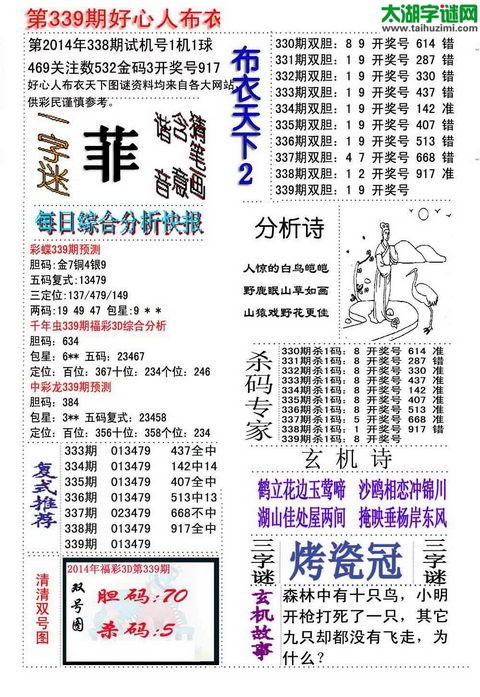 太湖字谜网
www.taihuzimi.com
第339期好心人布衣
第2014年338期试机号1机1球
469关注数532金码3开奖号917
好心人布衣天下图谜资料均来自各大网站
供彩民谨慎参考。
一字迷
菲
猜笔画
含意
谐音
每日综合分析快报
彩蝶339期预测
胆码:金7铜4银9
五码复式:13479
三定位:137/479/149
两码:19 49 47 包星:9 * *
千年虫339期福彩3D综合分析
胆码:634
包星:6** 五码:23467
定位:百位:367十位:234个位:246
中彩龙339期预测
胆码:384
包星:3** 五码复式:23458
定位:百位:356十位:358个位:234
复式推荐
333期 013479 437全中
334期 013479 142中14
335期 013479 407全中
336期 013479 513中13
337期 023479 668不中
338期 013479 917全中
339期 013479
清清双号图
2014年福彩3D第339期
双号图
胆码:70
杀码:5
布衣天下2
330期双胆:8 9 开奖号 614 错
331期双胆:1 9 开奖号 287 错
332期双胆:1 9 开奖号 330 错
333期双胆:1 9 开奖号 437 错
334期双胆:1 9 开奖号 142 准
335期双胆:1 9 开奖号 407 错
336期双胆:1 9 开奖号 513 错
337期双胆:4 7 开奖号 668 错
338期双胆:1 2 开奖号 917 准
339期双胆:1 9 开奖号
分析诗
人惊的白鸟皑皑
野鹿眠山草如画
山猿戏野花更佳
杀码专家
330期杀1码:8 开奖号 614 准
331期杀1码:8 开奖号 287 错
332期杀1码:8 开奖号 330 准
333期杀1码:8 开奖号 437 准
334期杀1码:8 开奖号 142 准
335期杀1码:8 开奖号 407 准
336期杀1码:8 开奖号 513 准
337期杀1码:5 开奖号 668 准
338期杀1码:1 开奖号 917 错
339期杀1码:8 开奖号
玄机诗
鹤立花边玉莺啼 沙鸥相恋冲锦川
湖山佳处屋两间 掩映垂杨岸东风
三字谜
烤瓷冠
三字谜
玄机故事
森林中有十只鸟,小明
开枪打死了一只,其它
九只却都没有飞走,为
什么?